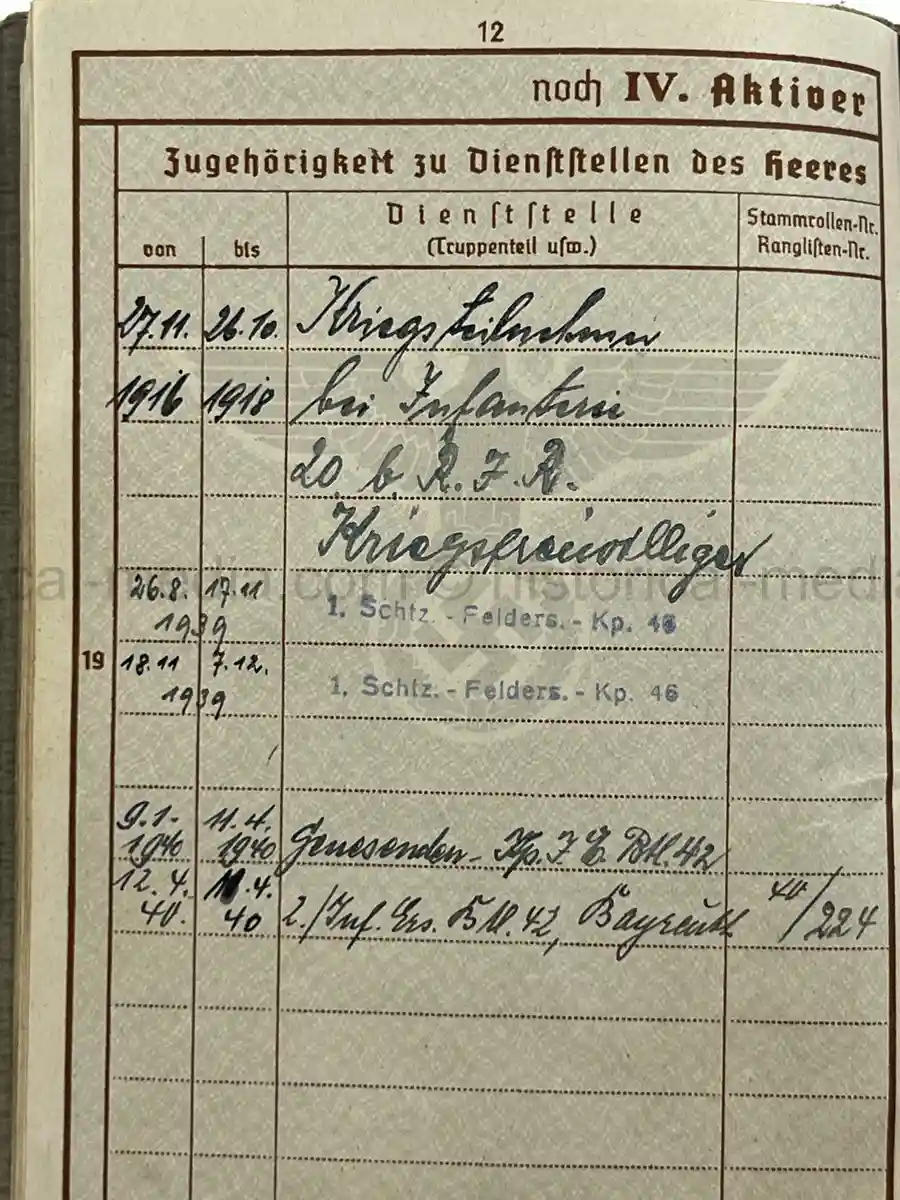 12
noch IV. Aktiver
Zugehörigkeit zu Dienststellen des Heeres
von bis Dienststelle (Truppenteil usw.) Stammrollen-Nr. Ranglisten-Nr.
27.11. 26.10. Kriegsteilnehmer
1916 1918 bei Infanterie
20 b. R. I. R.
Kriegsfreiwilliger
26.8. 17.11
1939 1. Schtz. - Felders. - Kp. 46
19
18.11 7.12.
1939 1. Schtz. - Felders. - Kp. 46
9.1. 11.4.
1940 1940 Genesenden - Kp. I. E. Btl. 42
12.4. 4. 40/224
40. 40 2./Inf. Ers. Btl. 42, Bayreuth
historical-media